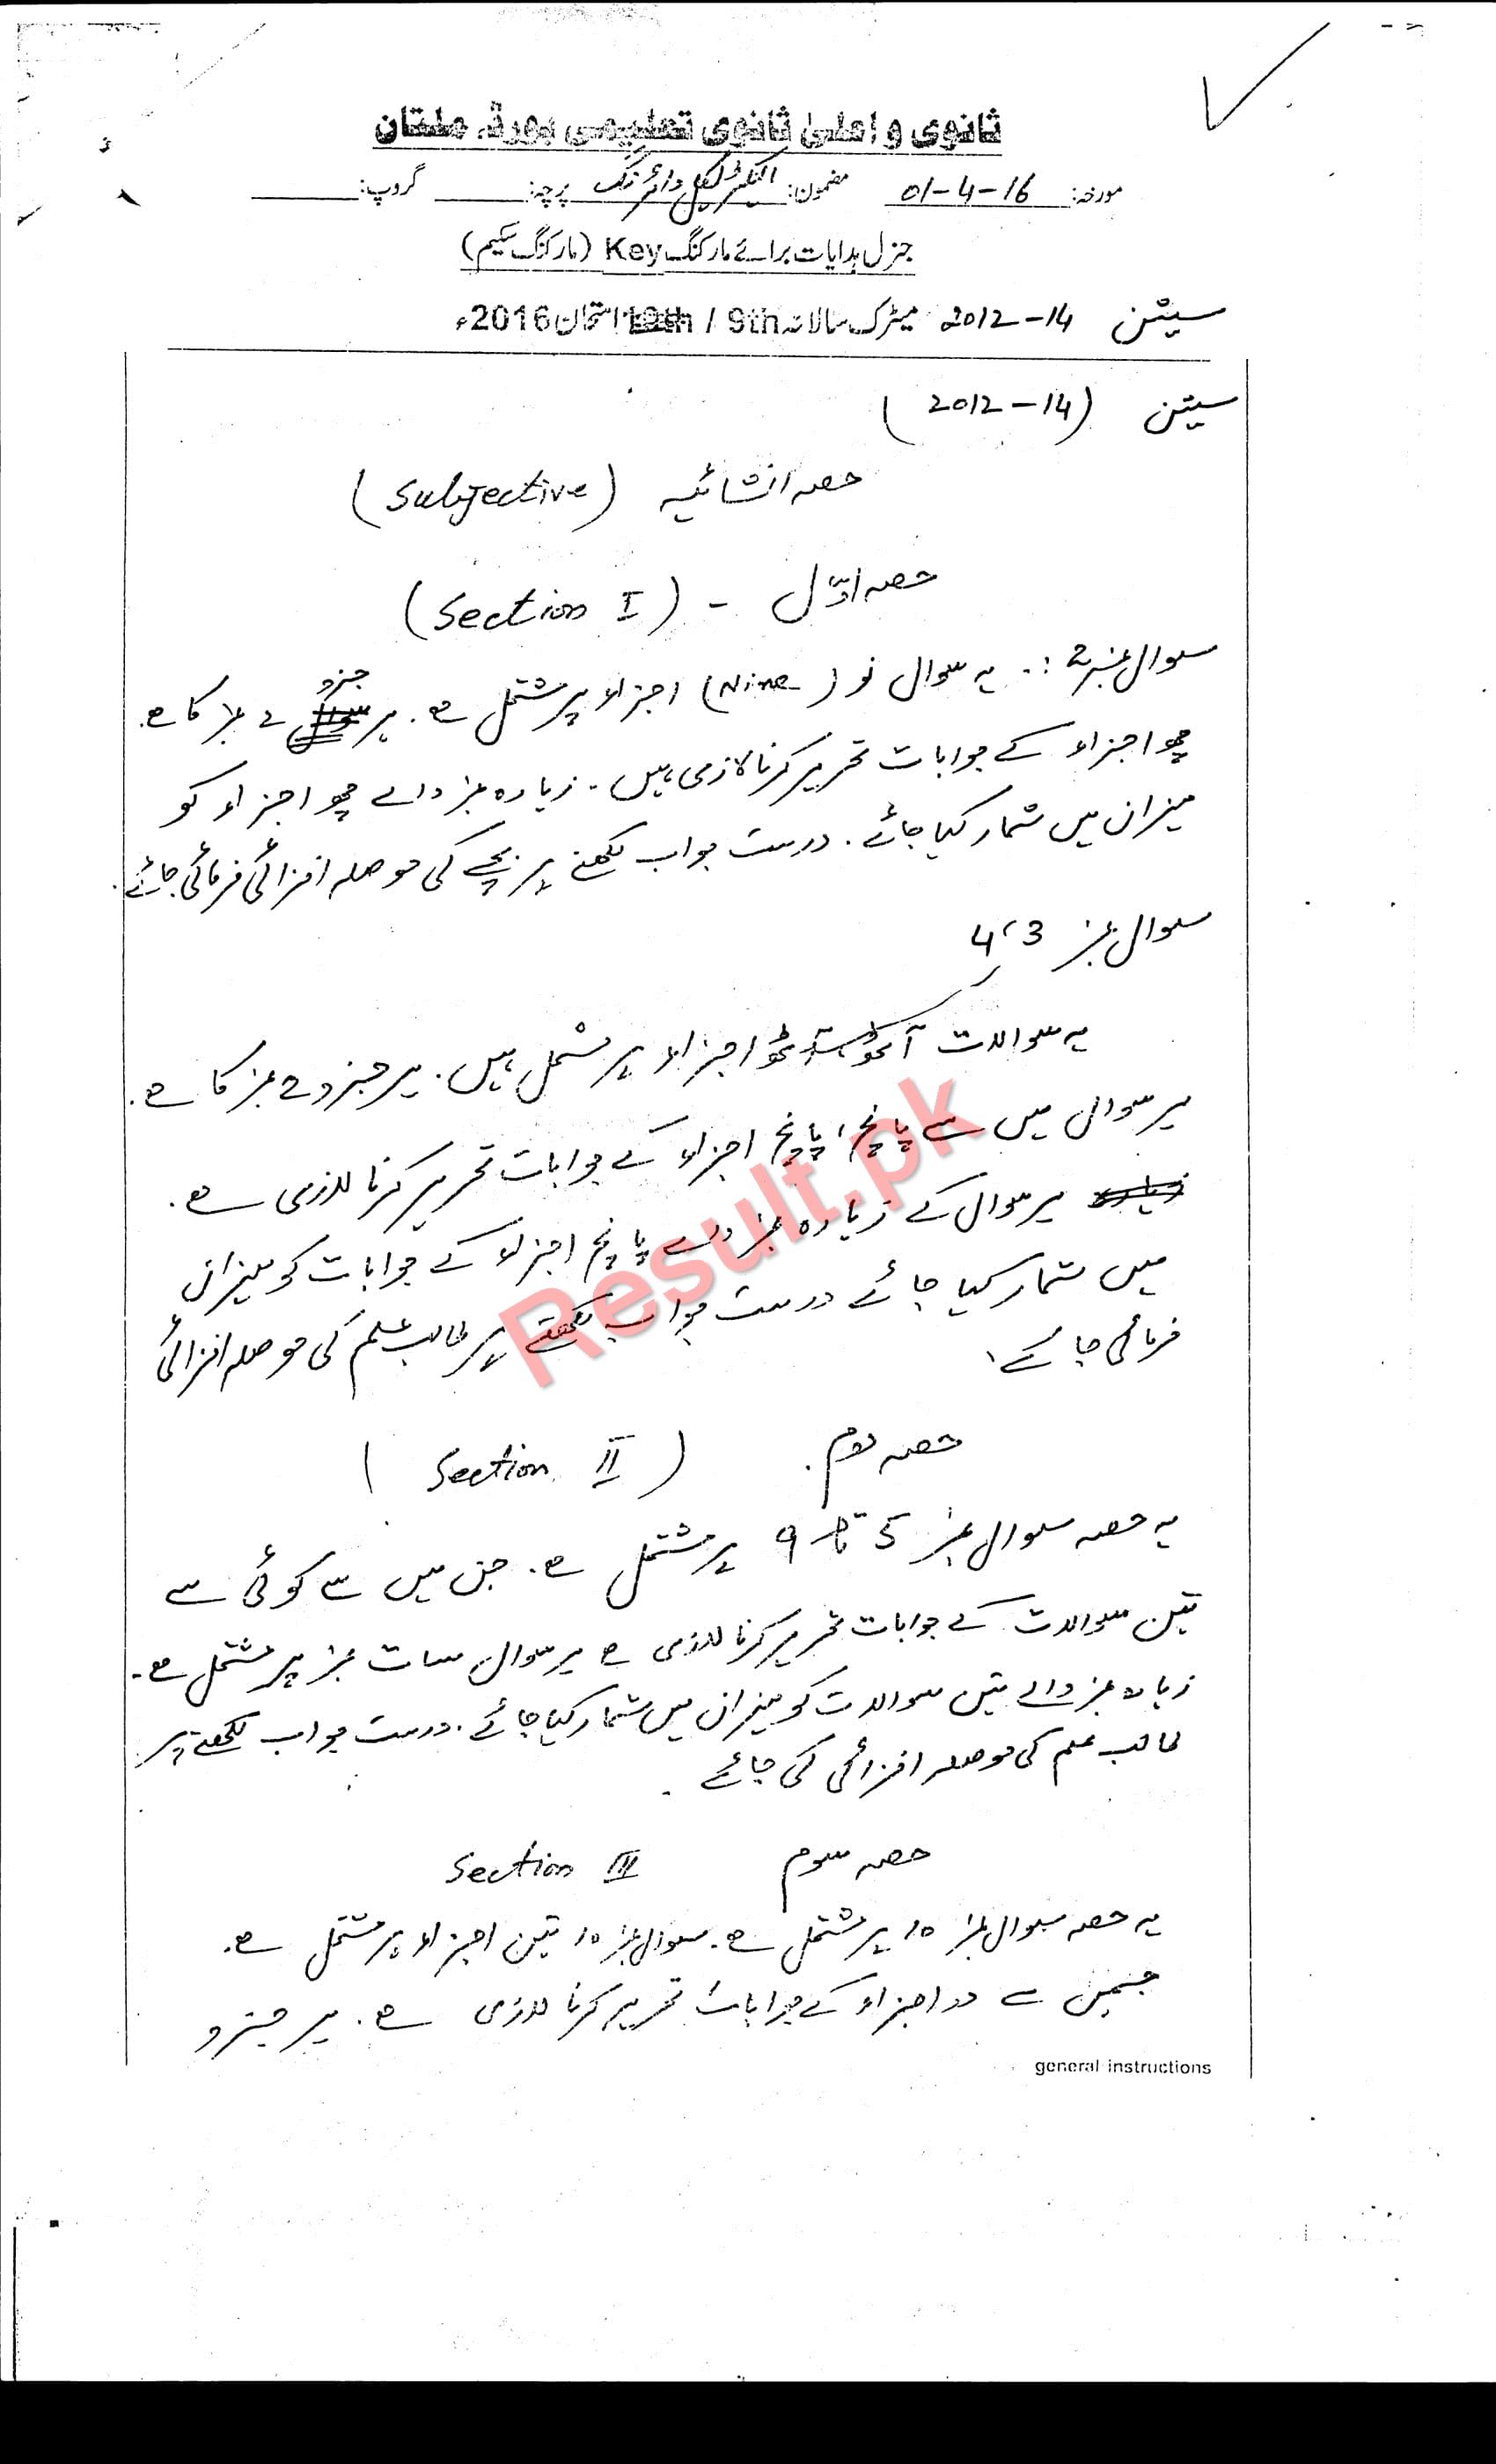 ثانوی و اعلیٰ ثانوی تعلیمی بورڈ، ملتان
مورخہ: 01-4-16 مضمون: الیکٹریکل وائرنگ پرچہ: گروپ:
جنرل ہدایات برائے مارکنگ Key (مارکنگ سکیم)
سیشن 2012-14 میٹرک سالانہ 9th / 10th امتحان 2016ء
سیشن (2012-14)
حصہ انشائیہ (Subjective)
حصہ اوّل - (Section I)
سوال نمبر 2:. یہ سوال نو (Nine) اجزاء پر مشتمل ہے. ہر جزو 2 نمبر کا ہے.
چھ اجزاء کے جوابات تحریر کرنا لازمی ہیں. زیادہ نمبر والے چھ اجزاء کو
میزان میں شمار کیا جائے. درست جواب لکھنے پر بچے کی حوصلہ افزائی فرمائی جائے.
سوال نمبر 3، 4
یہ سوالات آٹھ، آٹھ اجزاء پر مشتمل ہیں. ہر جزو 2 نمبر کا ہے.
ہر سوال میں سے پانچ، پانچ اجزاء کے جوابات تحریر کرنا لازمی ہے.
ہر سوال کے زیادہ نمبر والے پانچ اجزاء کے جوابات کو میزان
میں شمار کیا جائے درست جواب لکھنے پر طالب علم کی حوصلہ افزائی
فرمائی جائے.
حصہ دوم. (Section II)
یہ حصہ سوال نمبر 5 تا 9 پر مشتمل ہے. جن میں سے کوئی سے
تین سوالات کے جوابات تحریر کرنا لازمی ہے ہر سوال سات نمبر پر مشتمل ہے-
زیادہ نمبر والے تین سوالات کو میزان میں شمار کیا جائے. درست جواب لکھنے پر
طالب علم کی حوصلہ افزائی کی جائے.
حصہ سوم Section III
یہ حصہ سوال نمبر 10 پر مشتمل ہے. سوال نمبر 10 تین اجزاء پر مشتمل ہے.
جسمیں سے دو اجزاء کے جوابات تحریر کرنا لازمی ہے. ہر جزو
general instructions
Result.pk